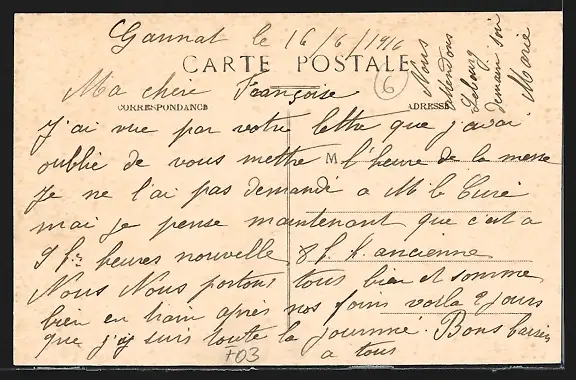 Gannat le 16/6/1916
CARTE POSTALE
6
Ma chere Françoise
CORRESPONDANCE
ADRESSE
J'ai vue par votre lettre que j'avai
oublié de vous mettre l'heure de la messe
M
Je ne l'ai pas demandé a M le Curé
mai je pense maintenant que c'est a
9 h heures nouvelle 8 h ancienne
Nous Nous portons tous bien et somme
bien en train après nos foins voila 2 jours
que j'y suis toute la journné. Bons baisers
a tous
Nous
attendons
demain soir
Marie
F03